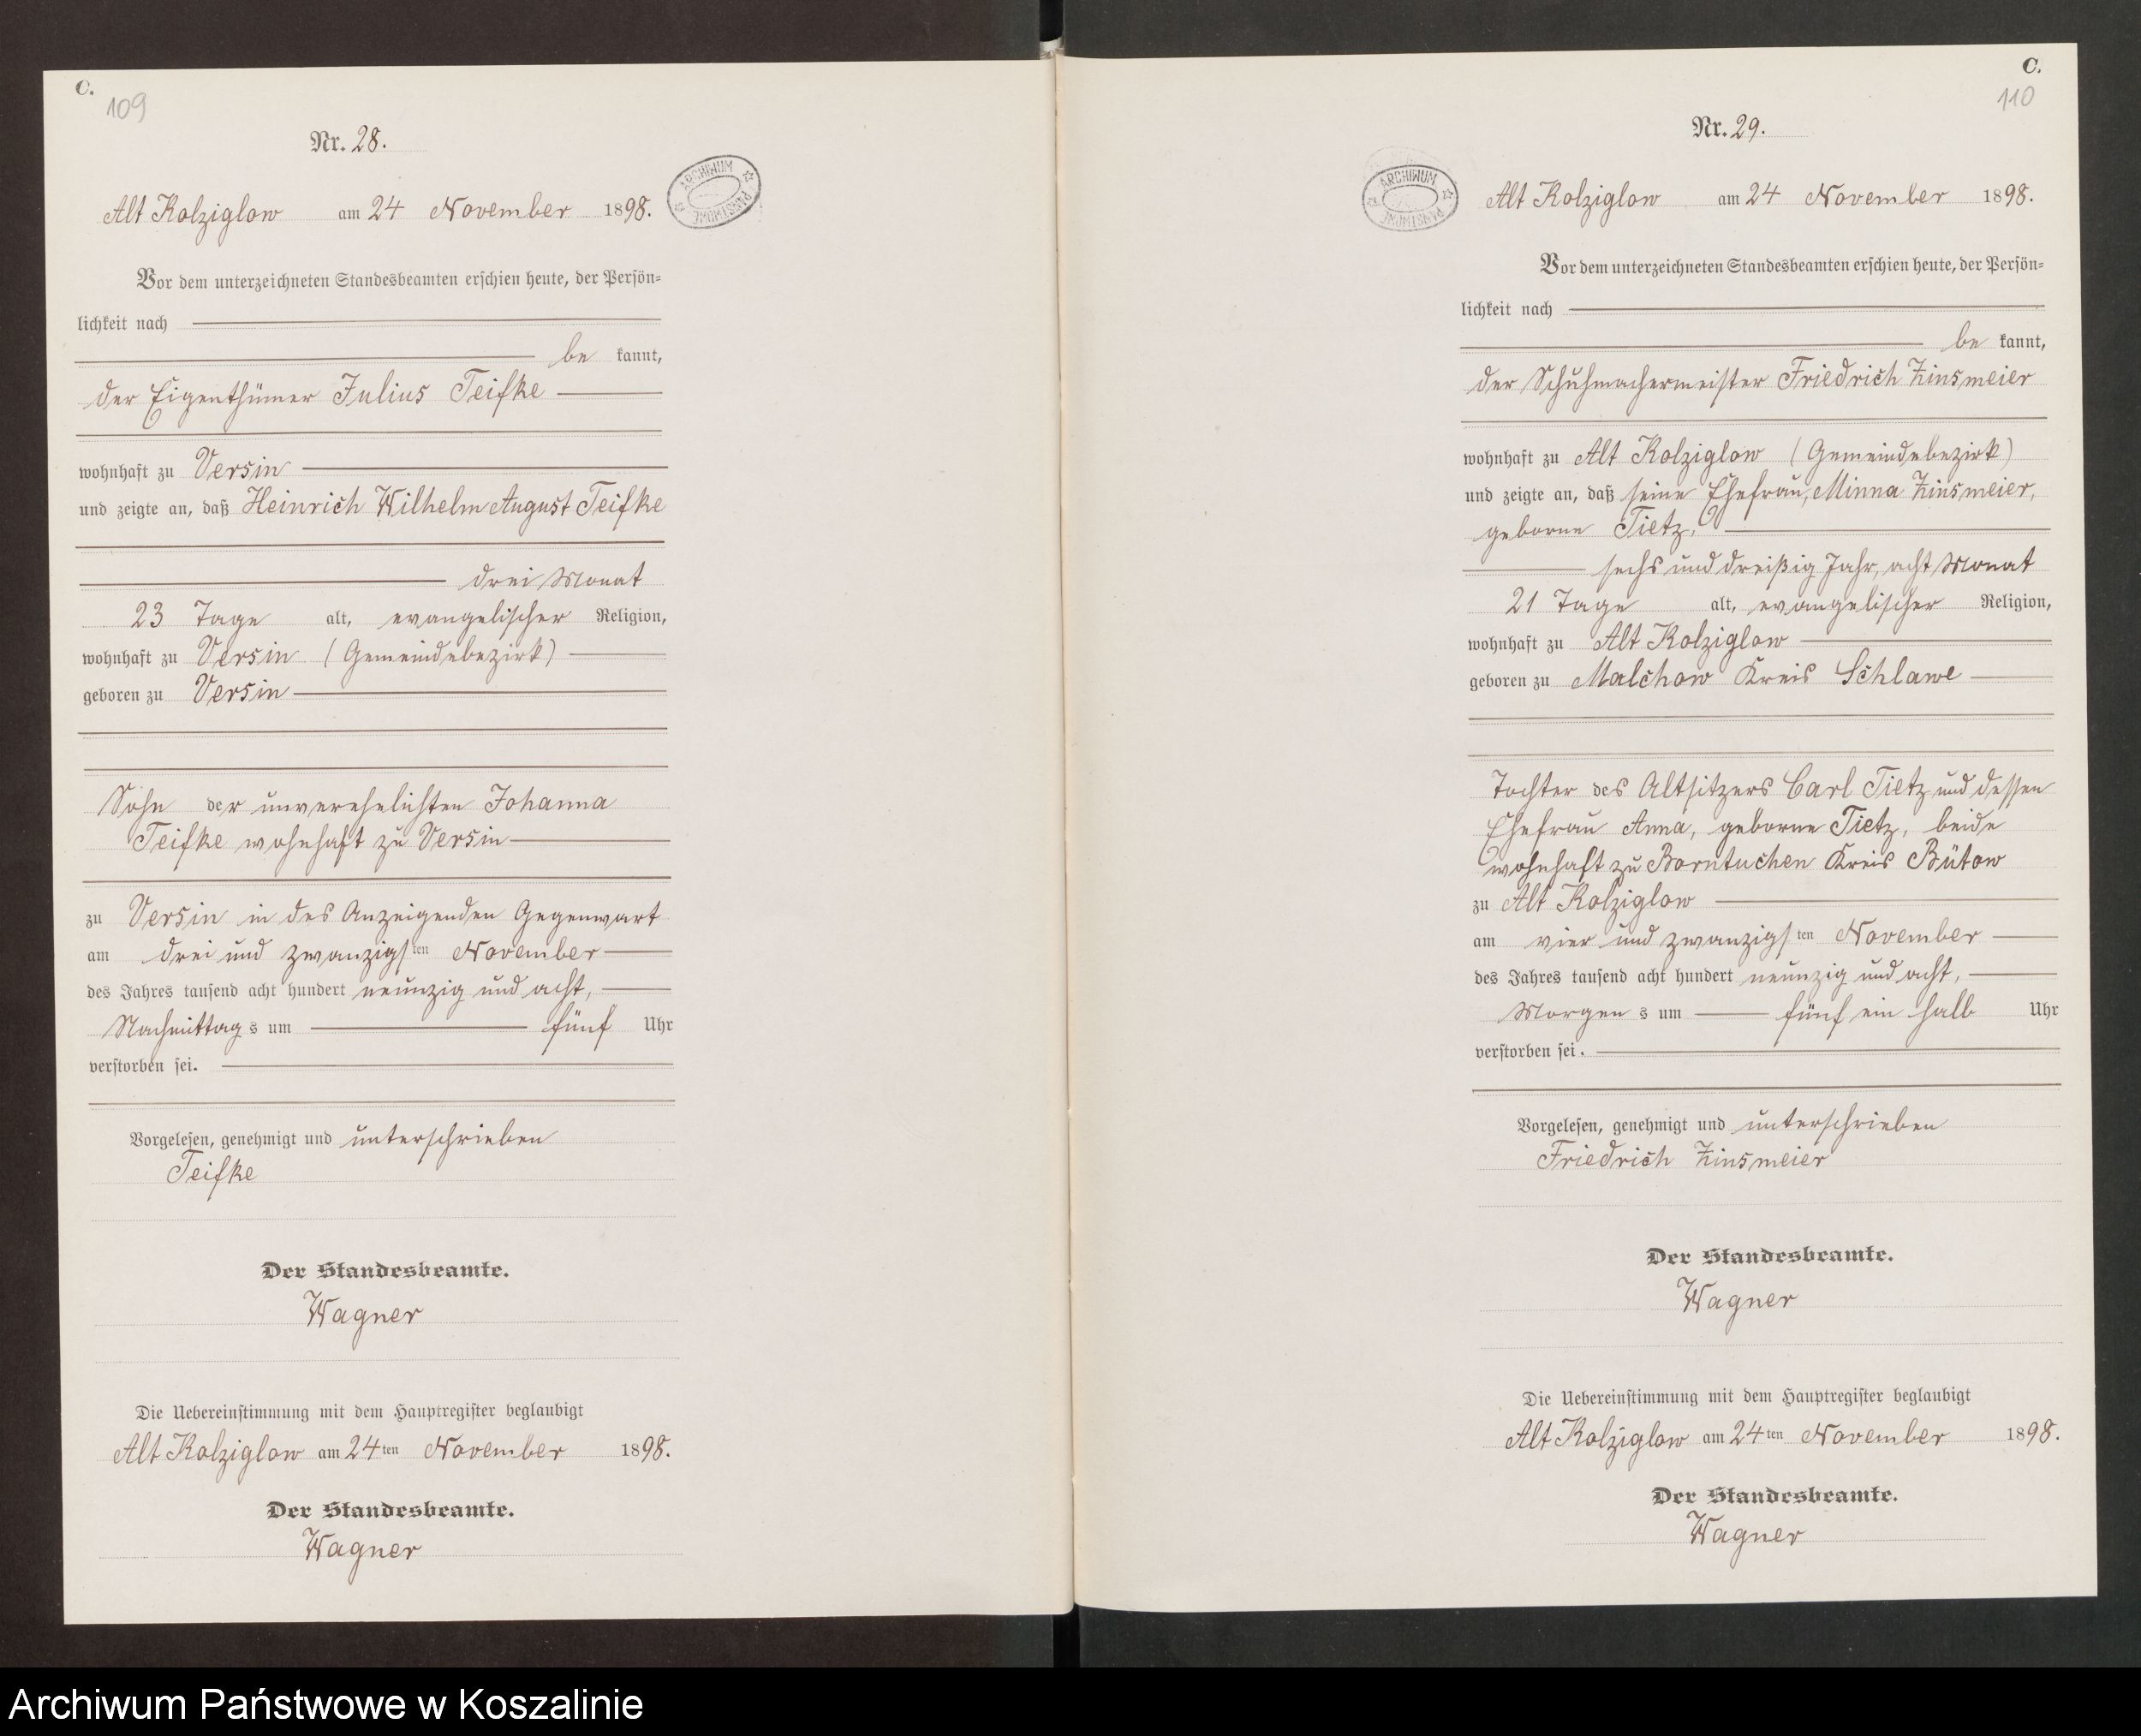 C.
109
Nr. 28.
ARCHIWUM PAŃSTWOWE
Alt Kolziglow am 24 November 1898.
Vor dem unterzeichneten Standesbeamten erschien heute, der Persön-
lichkeit nach
be kannt,
der Eigenthümer Julius Teifke
wohnhaft zu Versin
und zeigte an, daß Heinrich Wilhelm August Teifke
drei Monat
23 Tage alt, evangelischer Religion,
wohnhaft zu Versin (Gemeindebezirk)
geboren zu Versin
Sohn der unverehelichten Johanna
Teifke wohnhaft zu Versin
zu Versin in des Anzeigenden Gegenwart
am drei und zwanzigsten November
des Jahres tausend acht hundert neunzig und acht,
Nachmittags um fünf Uhr
verstorben sei.
Vorgelesen, genehmigt und unterschrieben
Teifke
Der Standesbeamte.
Wagner
Die Uebereinstimmung mit dem Hauptregister beglaubigt
Alt Kolziglow am 24ten November 1898.
Der Standesbeamte.
Wagner
C.
110
Nr. 29.
ARCHIWUM PAŃSTWOWE
Alt Kolziglow am 24 November 1898.
Vor dem unterzeichneten Standesbeamten erschien heute, der Persön-
lichkeit nach
be kannt,
der Schuhmachermeister Friedrich Zinsmeier
wohnhaft zu Alt Kolziglow (Gemeindebezirk)
und zeigte an, daß seine Ehefrau, Minna Zinsmeier,
geborne Tietz,
sechs und dreißig Jahr, acht Monat
21 Tage alt, evangelischer Religion,
wohnhaft zu Alt Kolziglow
geboren zu Malchow Kreis Schlawe
Tochter des Altsitzers Carl Tietz und dessen
Ehefrau Anna, geborne Tietz, beide
wohnhaft zu Borntuchen Kreis Bütow
zu Alt Kolziglow
am vier und zwanzigsten November
des Jahres tausend acht hundert neunzig und acht,
Morgens um fünf ein halb Uhr
verstorben sei.
Vorgelesen, genehmigt und unterschrieben
Friedrich Zinsmeier
Der Standesbeamte.
Wagner
Die Uebereinstimmung mit dem Hauptregister beglaubigt
Alt Kolziglow am 24ten November 1898.
Der Standesbeamte.
Wagner
Archiwum Państwowe w Koszalinie